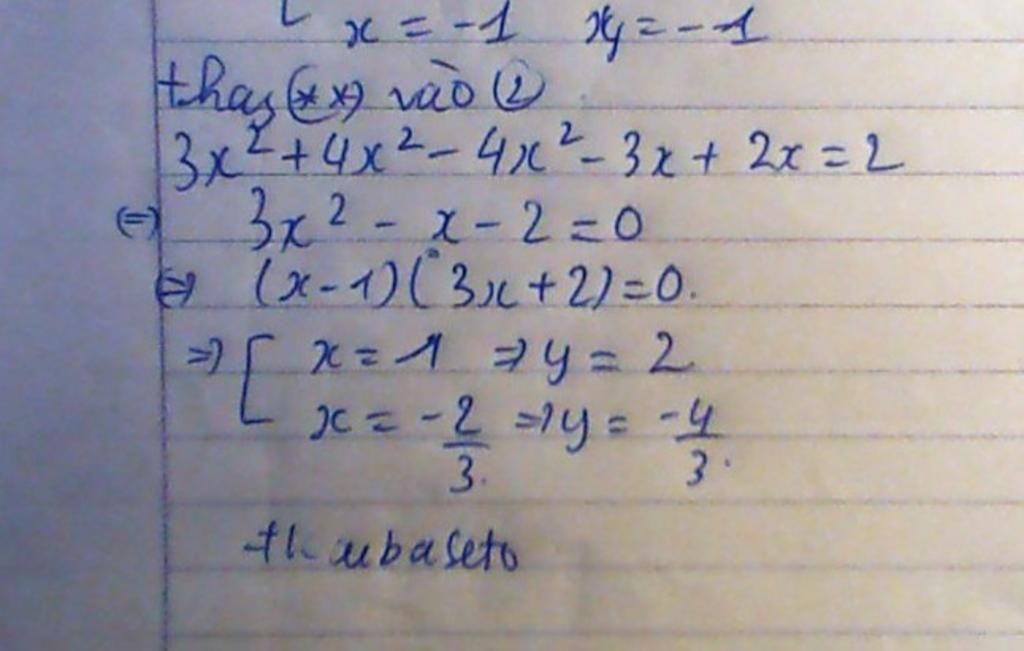 x = -1 y = -1
thay (**) vào (2)
3x² + 4x² - 4x² - 3x + 2x = 2
⇔ 3x² - x - 2 = 0
⇔ (x-1)(3x+2)=0.
⇒ [ x = 1 ⇒ y = 2
x = -2/3. ⇒ y = -4/3.